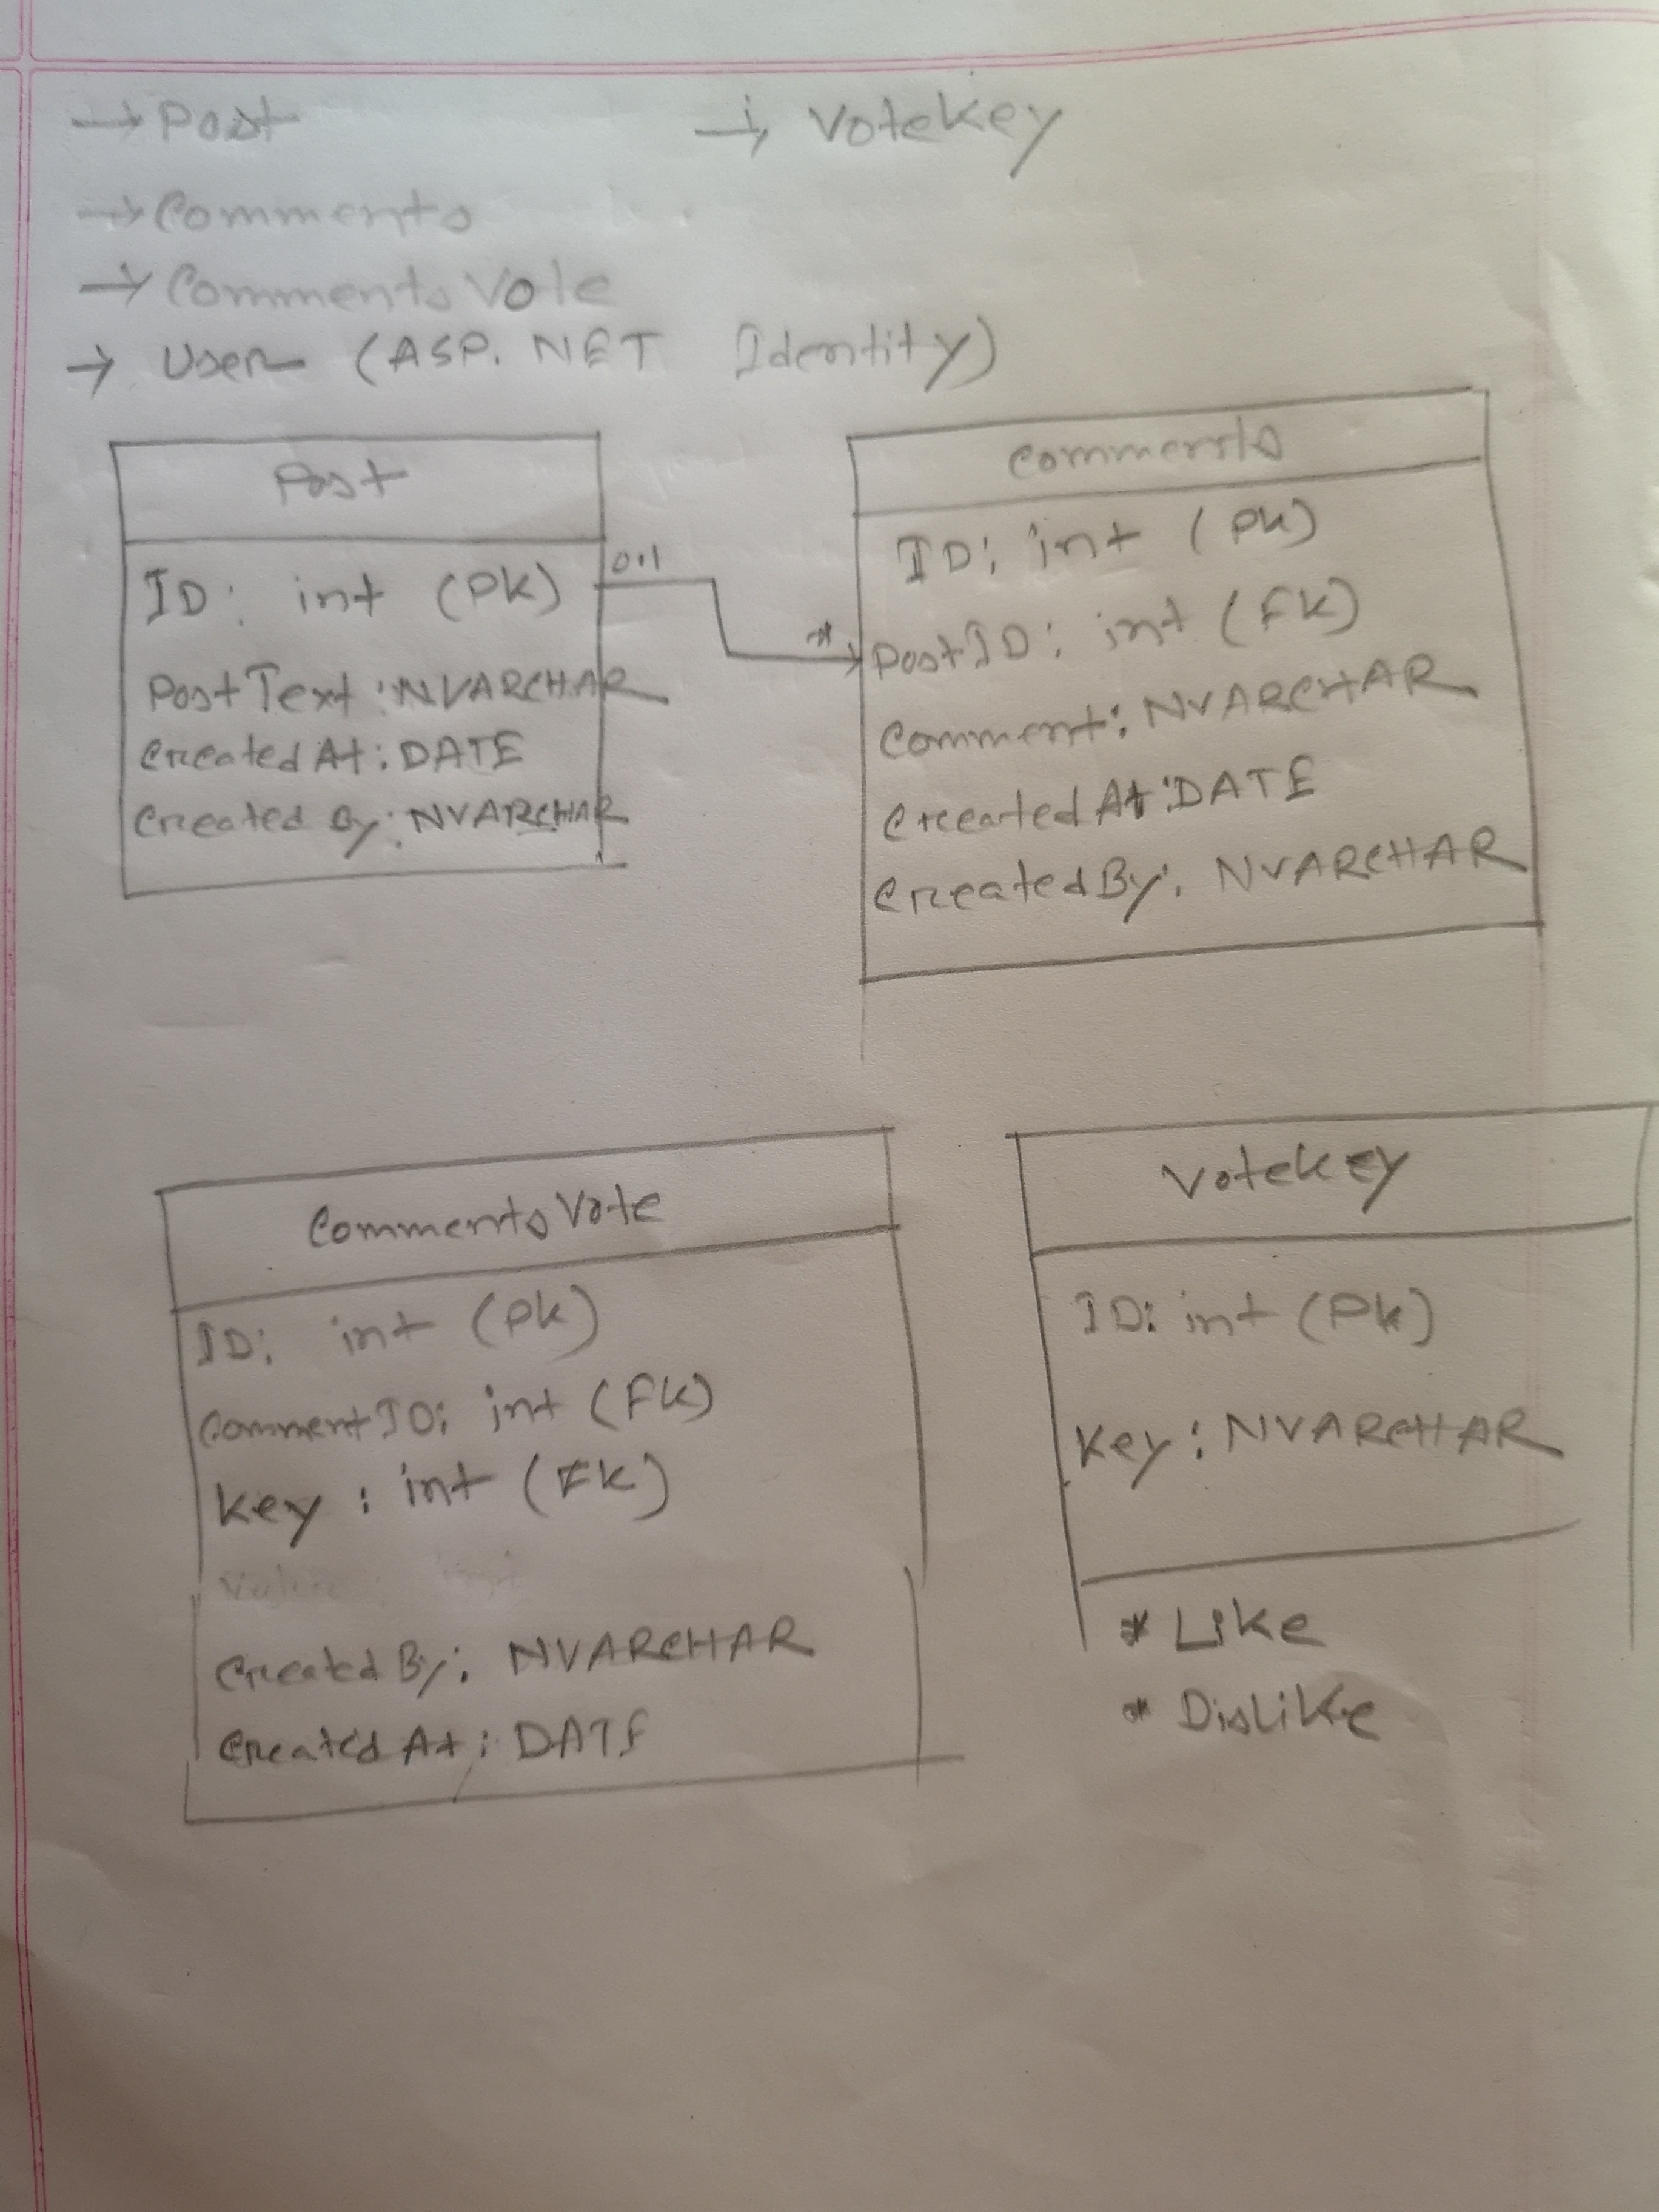 → Post
→ Comments
→ CommentsVote
→ User (ASP.NET Identity)
→ Votekey
Post
ID: int (PK)
PostText: NVARCHAR
CreatedAt: DATE
Created By: NVARCHAR
0.1
*
Comments
ID: int (PK)
PostID: int (FK)
Comment: NVARCHAR
CreatedAt: DATE
CreatedBy: NVARCHAR
CommentsVote
ID: int (PK)
CommentID: int (FK)
Key: int (FK)
CreatedBy: NVARCHAR
CreatedAt: DATE
Votekey
ID: int (PK)
Key: NVARCHAR
* Like
* Dislike